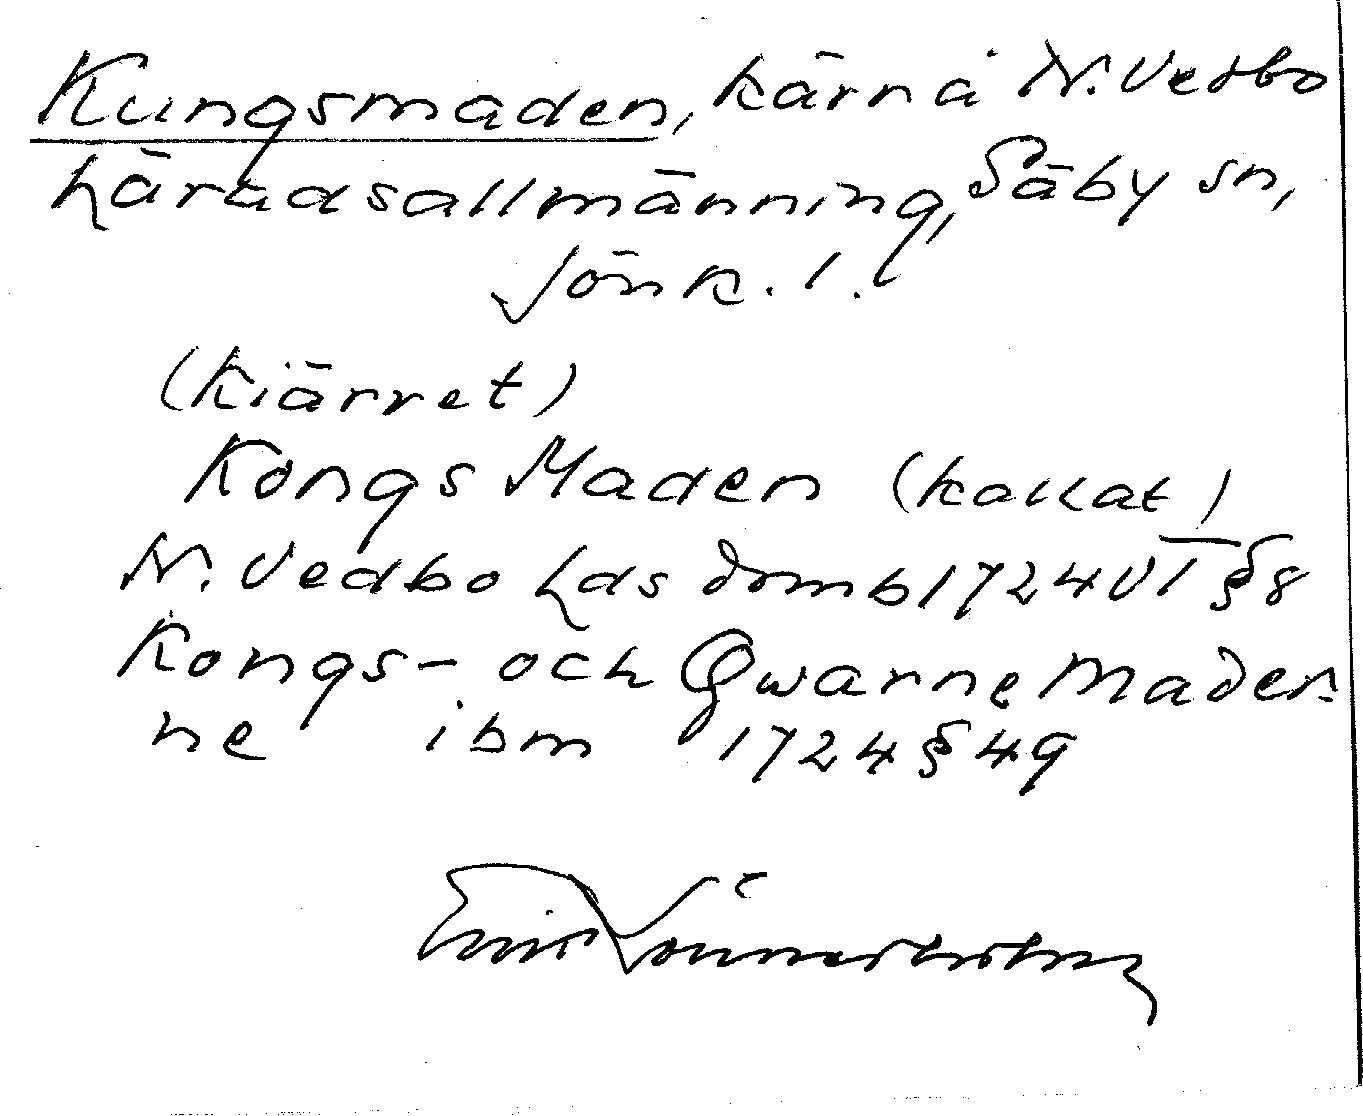 Kungsmaden, kärr å N. Vedbo
häradsallmänning, Säby sn,
Jönk. l.
(Kiärret)
Kongs Maden (kallat)
N. Vedbo hds domb 1724 VI § 8
Kongs- och Qwarne Mader-
ne ibm 1724 § 49